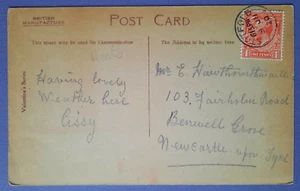 BRITISH
MANUFACTURE
POST CARD
This space may be used for Communication
The Address to be written here
Valentine's Series
Having lovely
Weather here
Cissy
E Hawthornthwaite
103, Fairholm Road
Benwell Grove
Newcastle upon Tyne